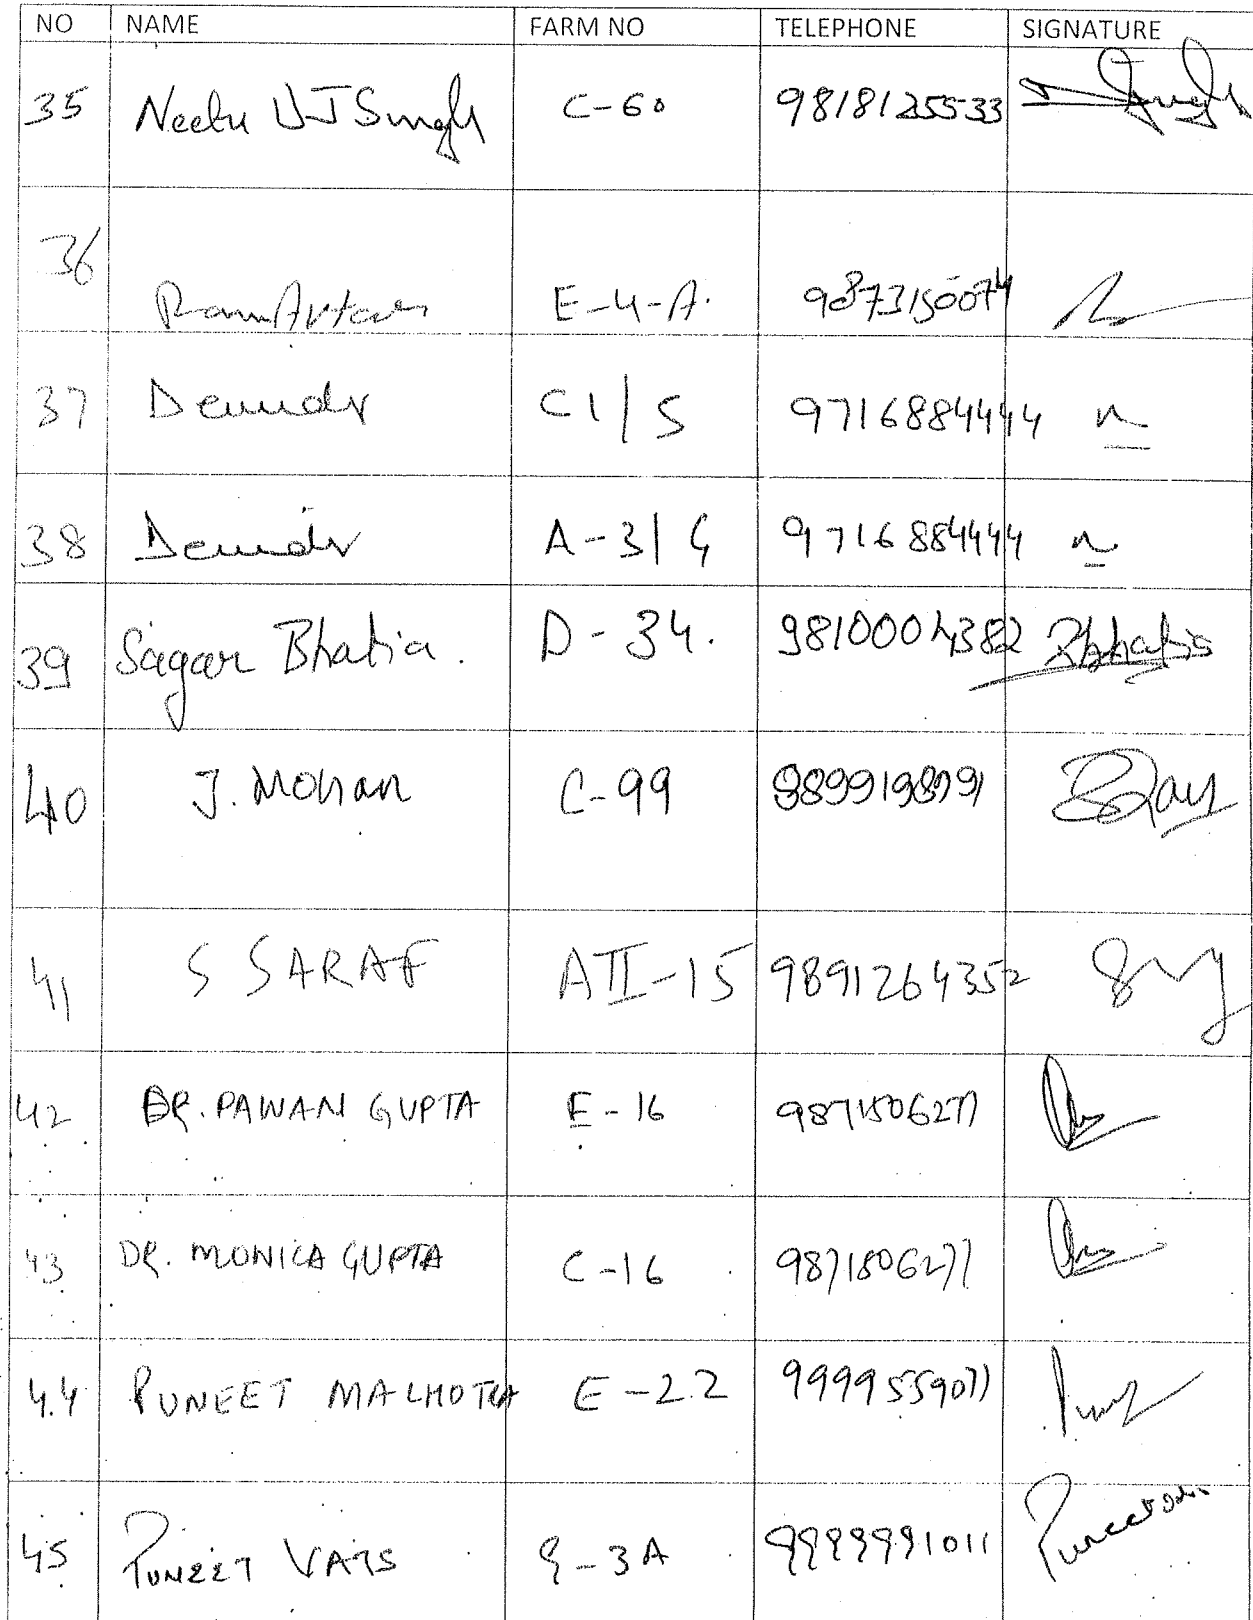 NO NAME FARM NO TELEPHONE SIGNATURE
35 Neetu VJ Singh C-60 9818125533 Singh
36 RamAvtar E-4-A. 9873150074
37 C1/5 9716884444
38 A-3/ 9716884444
39 Sagar Bhatia. D-34. 9810004382 Bhatia
40 J. Mohan C-99
41 S SARAF AII-15 9891264352
42 DR. PAWAN GUPTA E-16 9871506277
43 DR. MONICA GUPTA C-16 9871506277
44 PUNEET MALHOTRA E-22 9999559077
45 PUNEET VATS 9999991011 Puneet